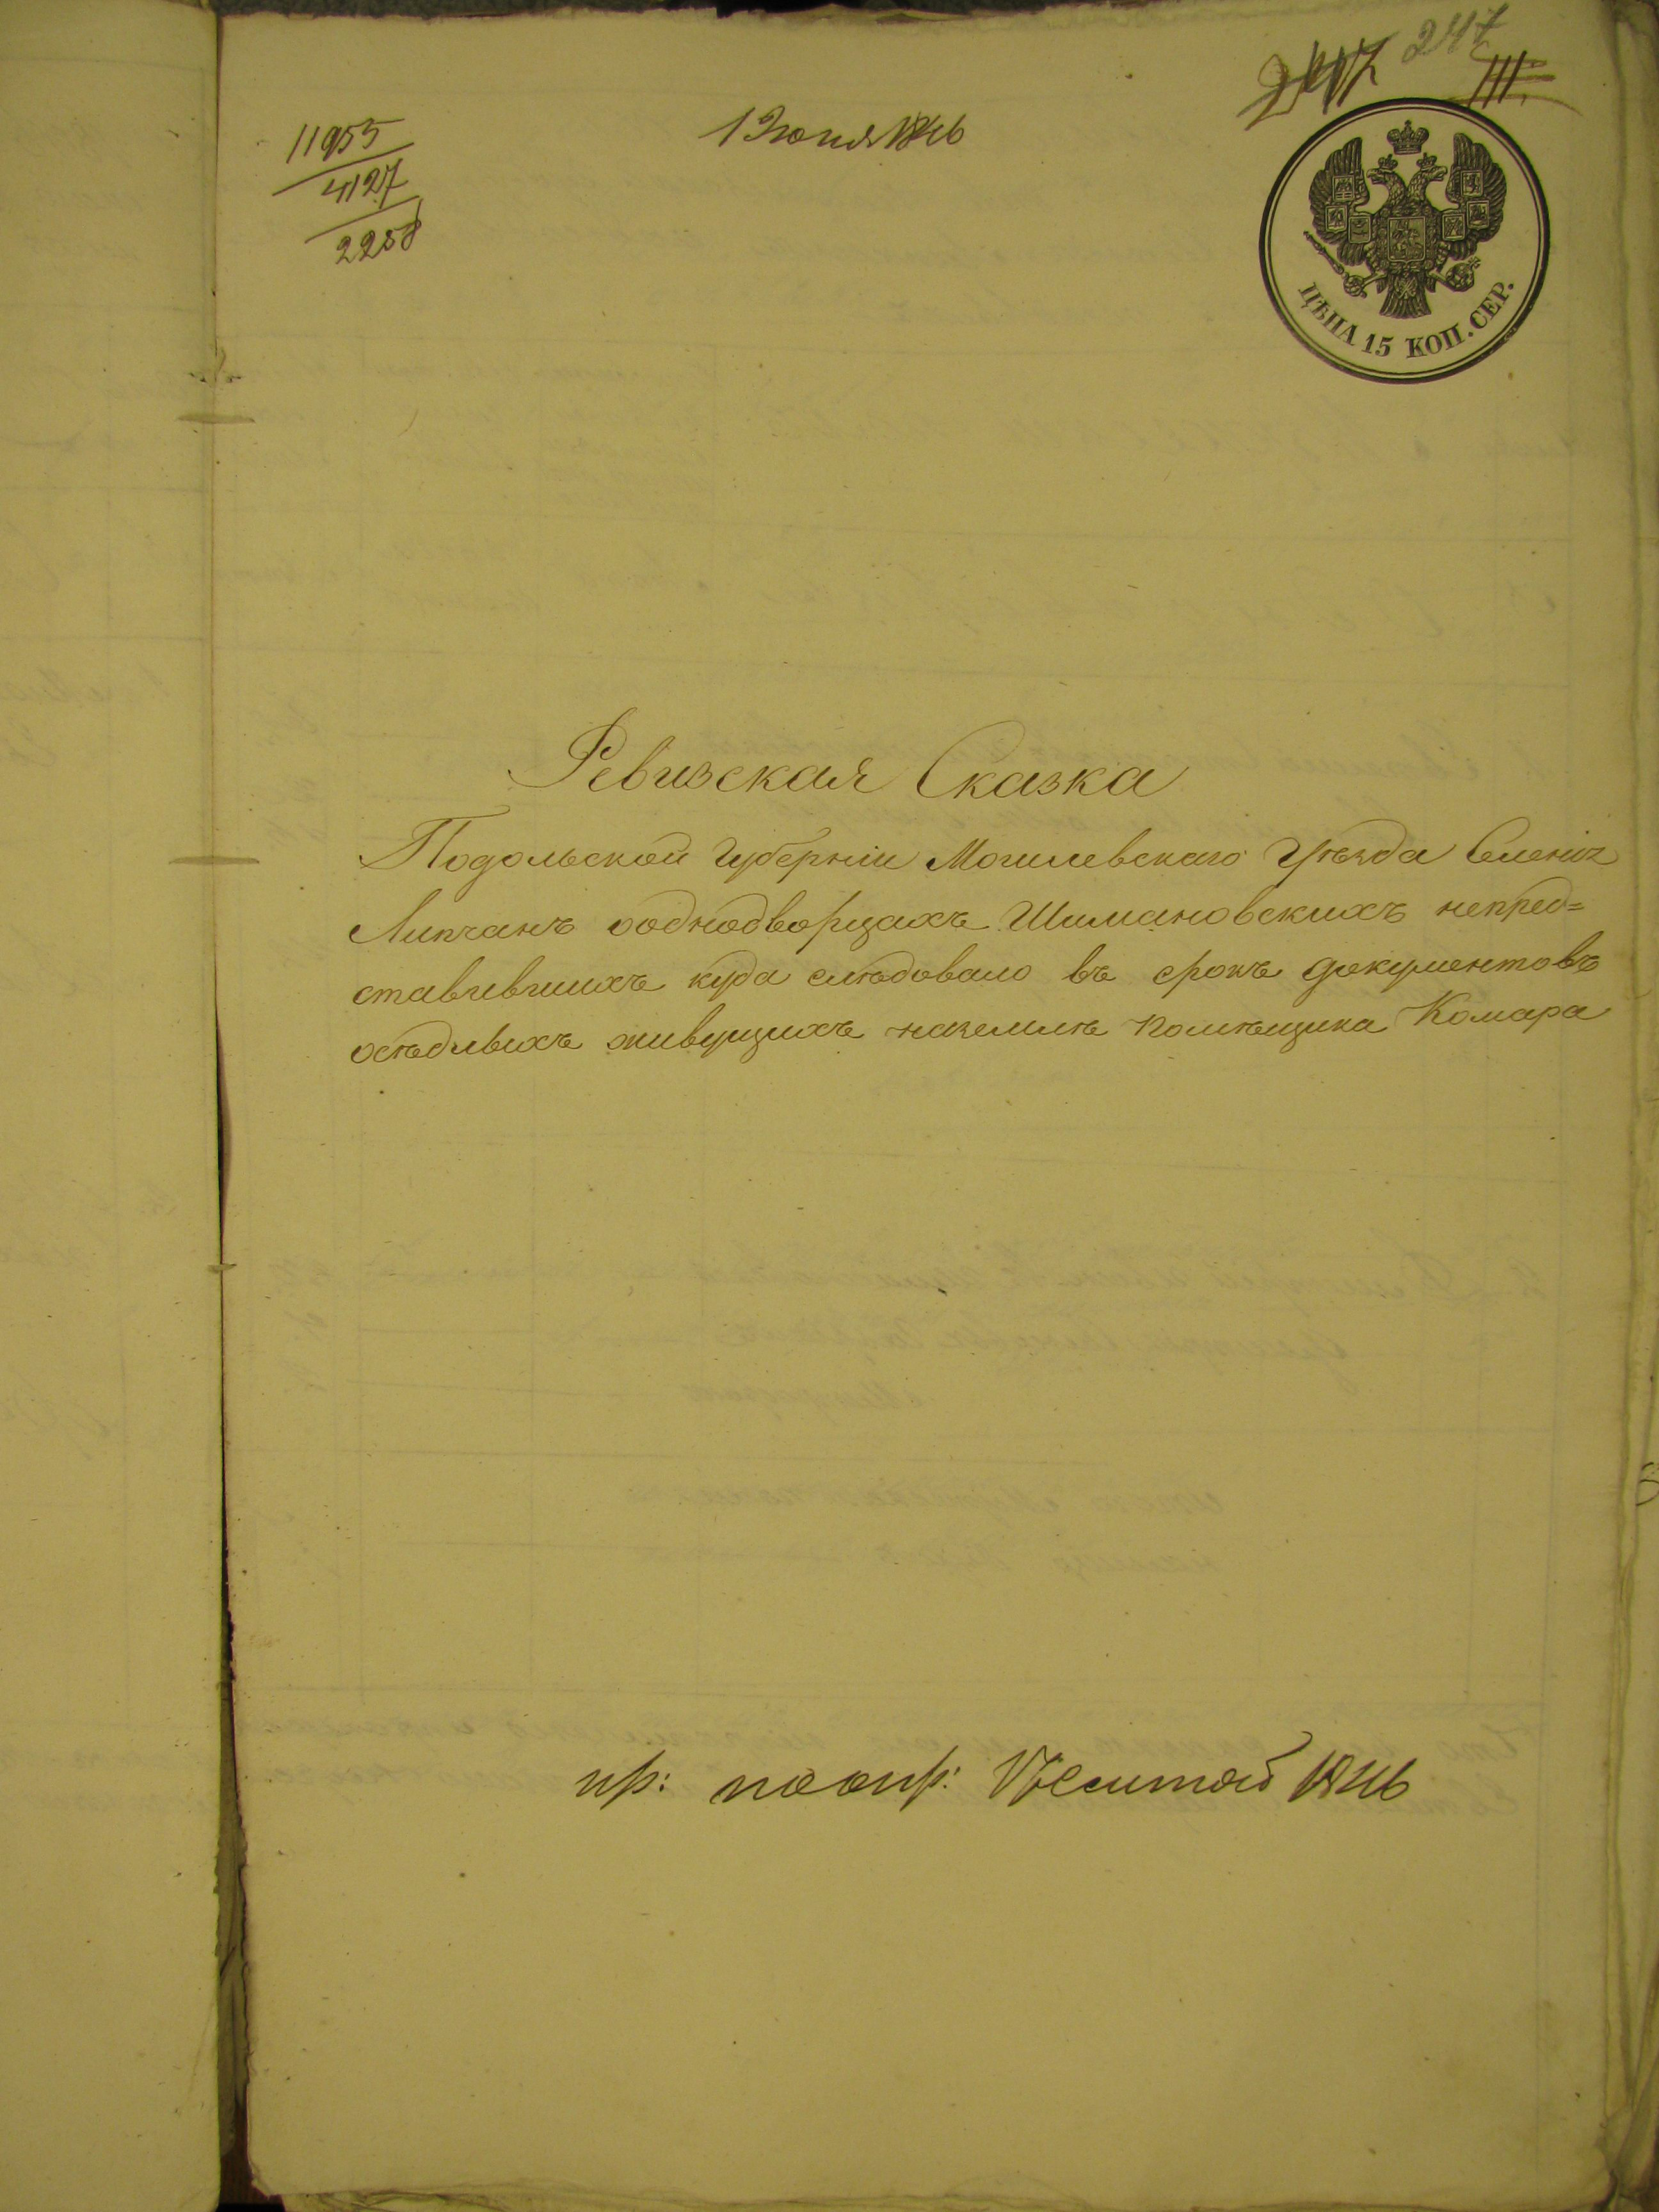 247
III.
11953
4127
2258
1 Июня 1846
ЦѢНА 15 КОП. СЕР.
Ревизская Сказка
Подольской Губерніи Могилевского Уѣзда Селенія
Липчанъ ооднодворцахъ Шимановскихъ непред=
ставившихъ куда слѣдовало въ срокъ документовъ
осѣдлыхъ живущихъ наземлѣ Помѣщика Комара
1846